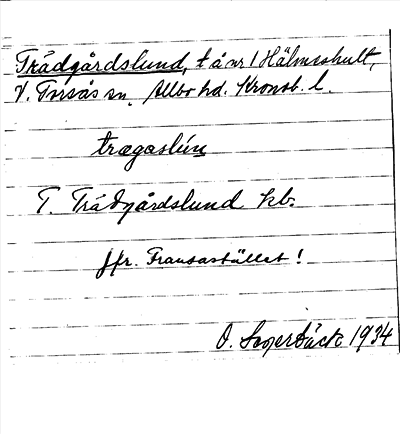 Trädgårdslund, t å nr 1 Hälmsshult,
V. Torsås sn. Allbo hd. Kronob. l.
trægaslún
T. Trädgårdslund kb.
Jfr. Fransastället!
O. 1934